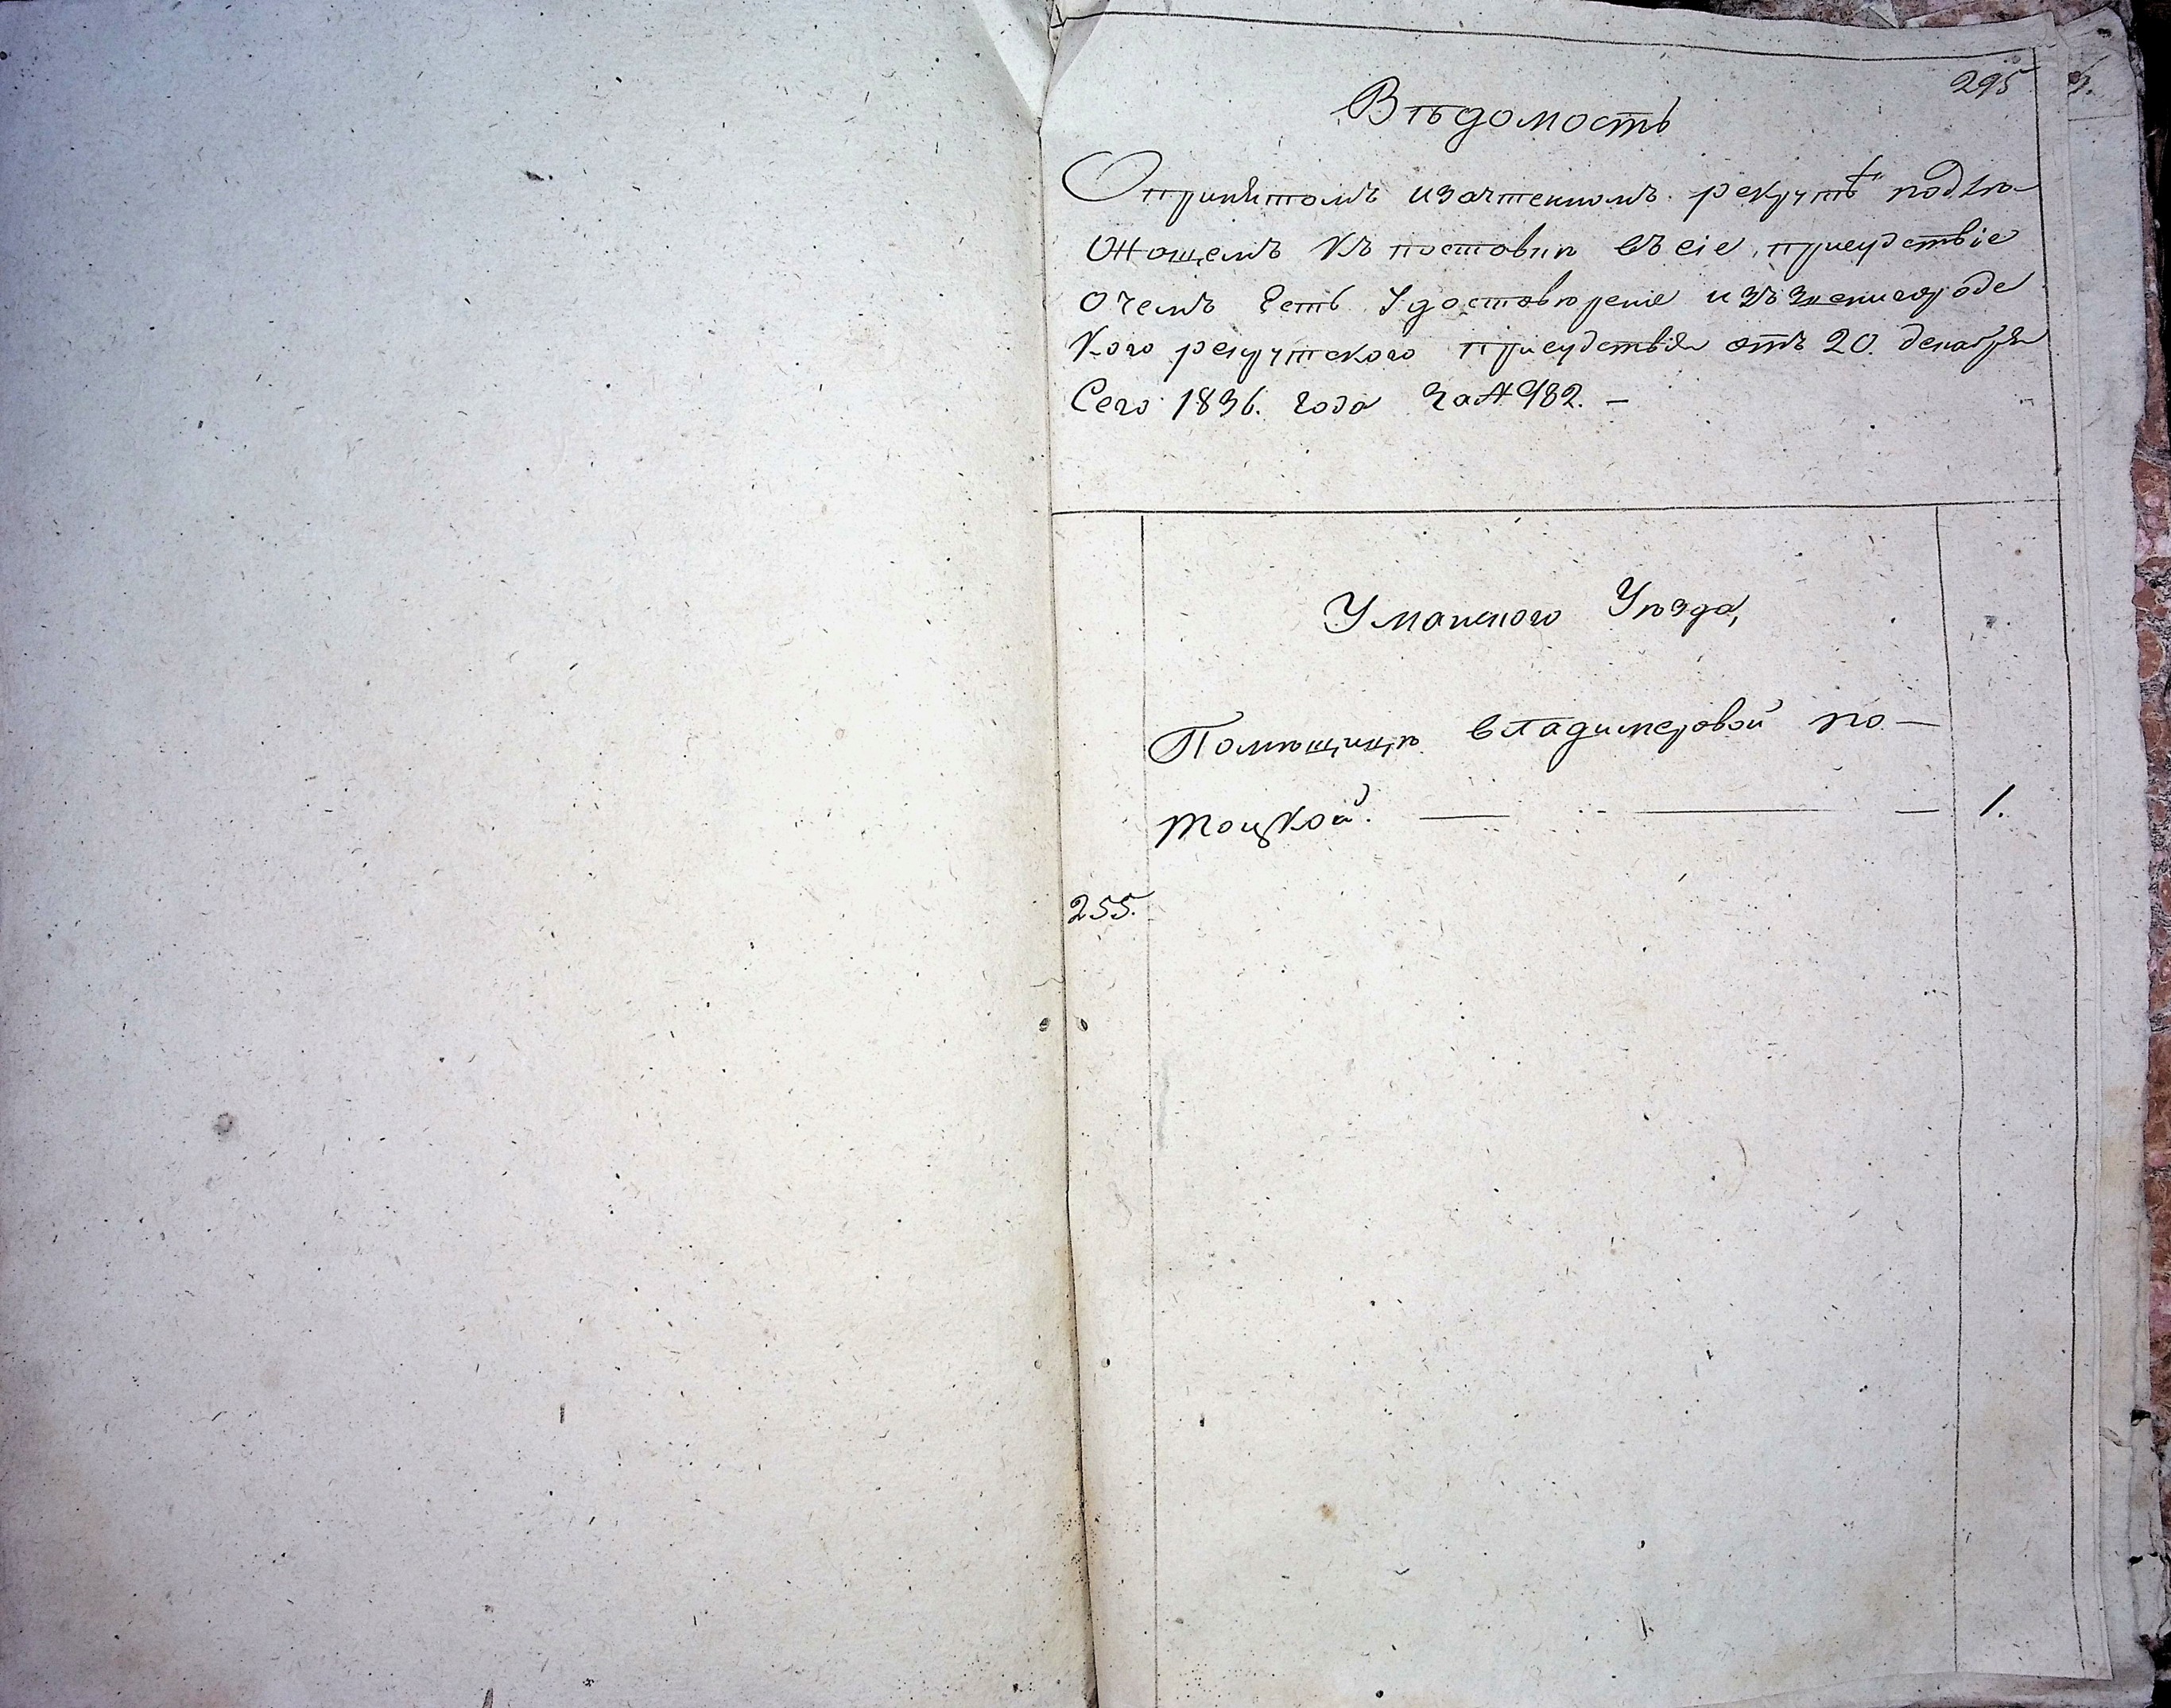 295
Вѣдомость
Опринятомъ изачтенномъ рекрутѣ подлѣ
жащемъ къ поставкѣ въ сіе присудствіе
очемъ есть Удостовѣреніе изъ звенигородс
кого рекрутского присудствія отъ 20. декабря
Сего 1836. года за № 982. —
Уманского Уѣзда,
Помѣщицѣ владимеровой по—
тоцкой. — — — 1.
255.